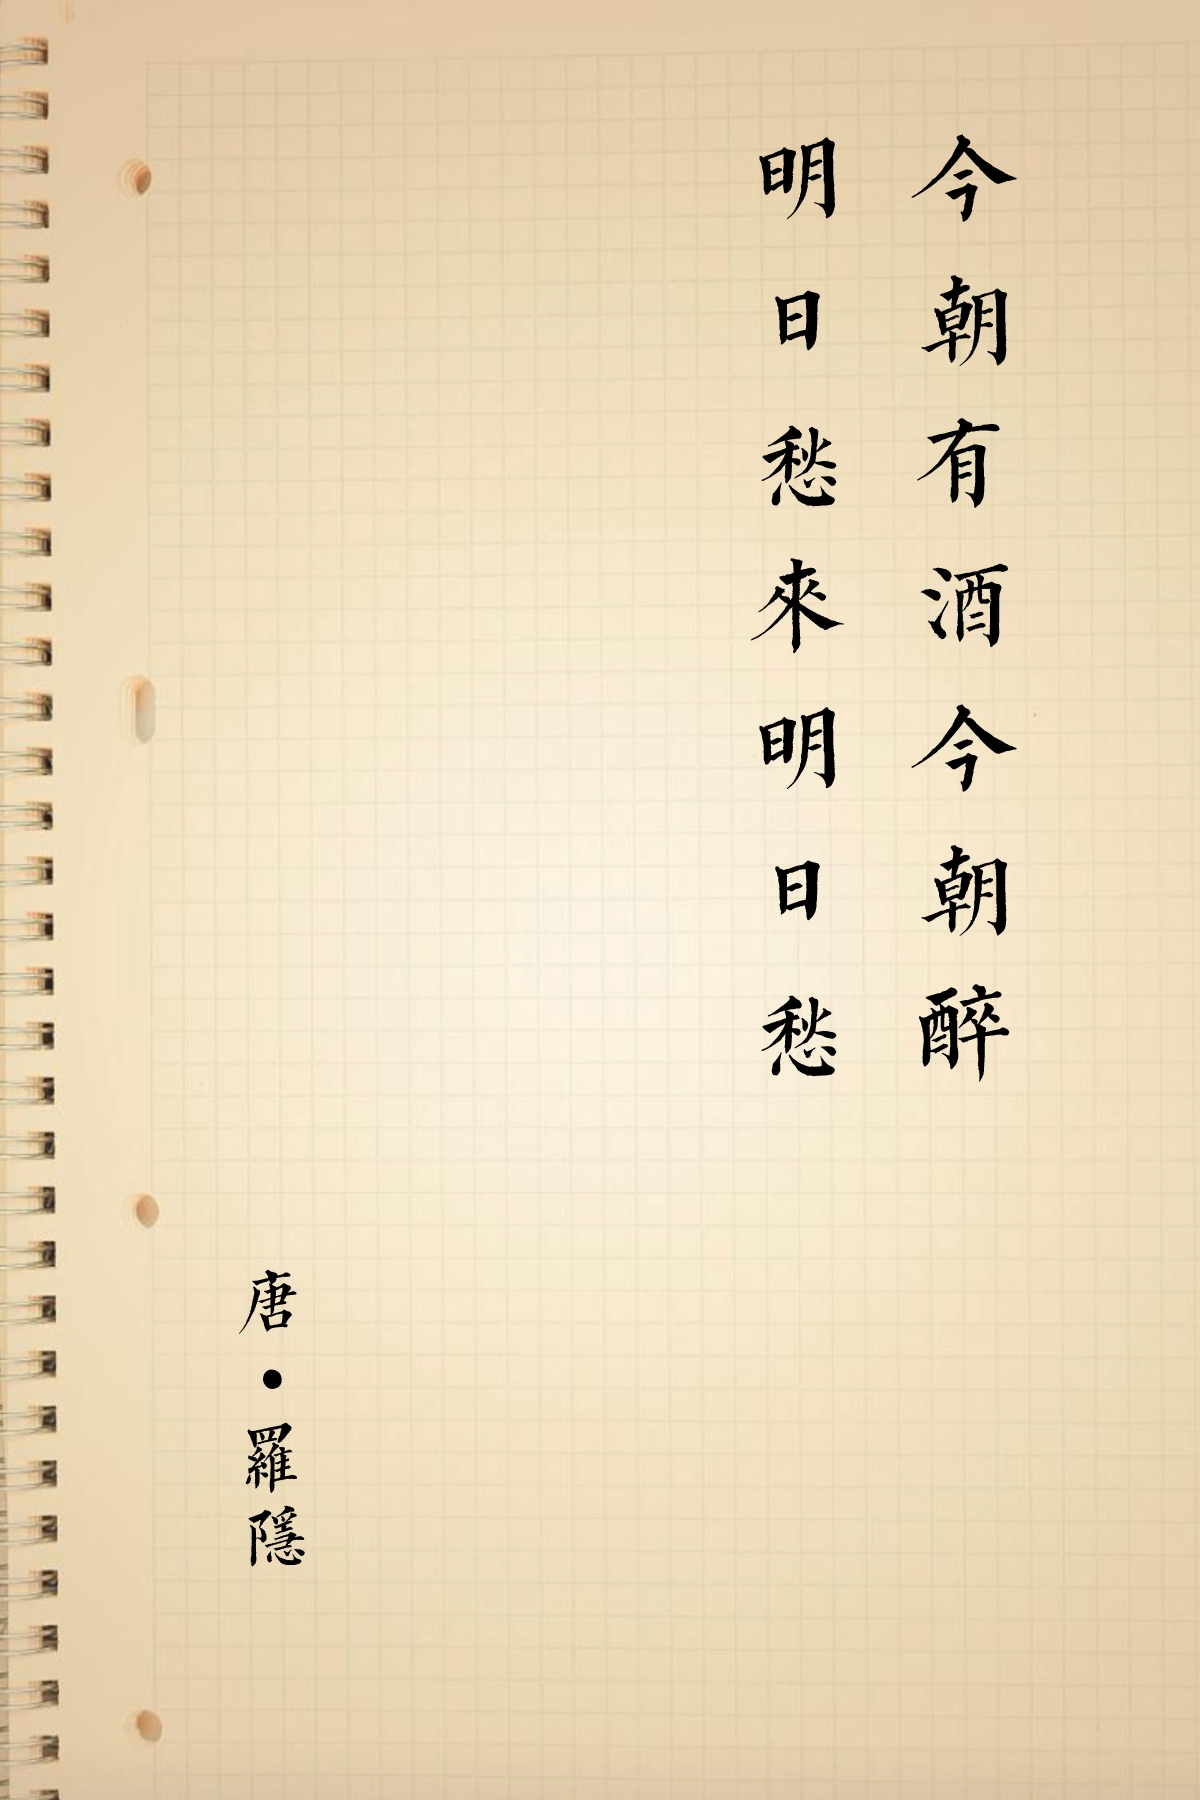 今朝有酒今朝醉
明日愁來明日愁
唐•羅隱